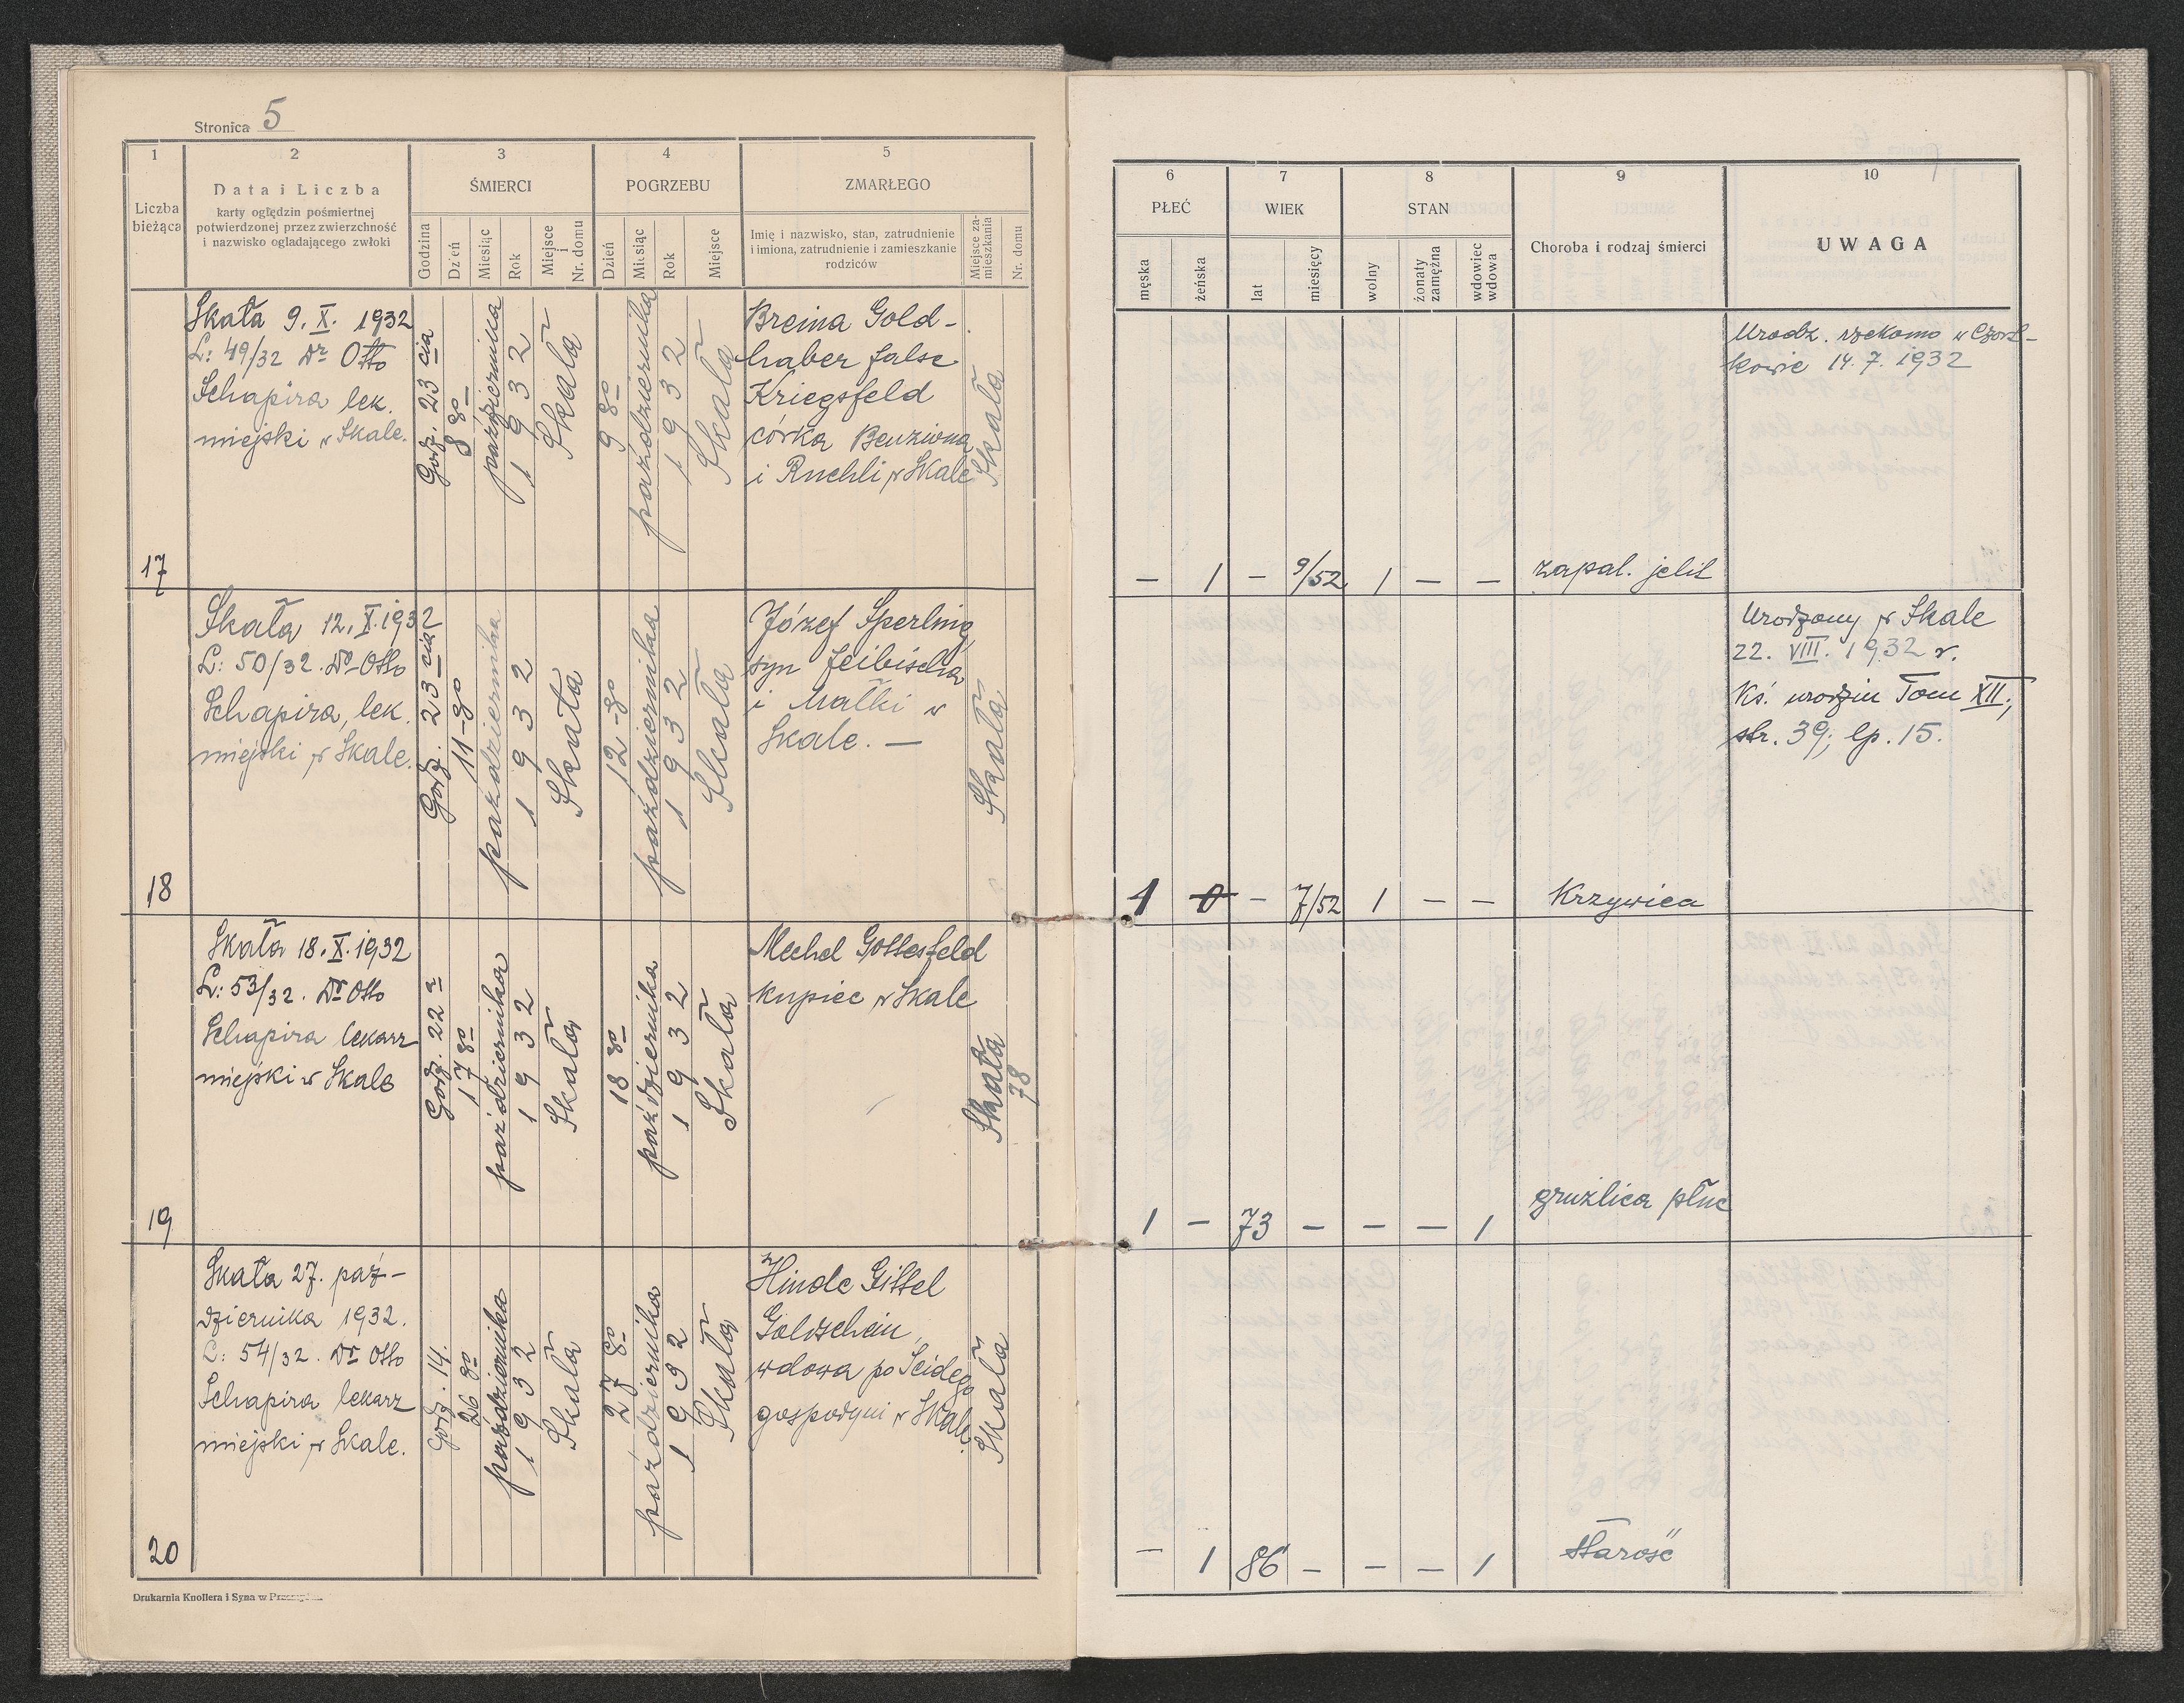 Stronica 5
1
2
3
4
5
Liczba
bieżąca
Data i Liczba
karty oględzin pośmiertnej
potwierdzonej przez zwierzchność
i nazwisko oglądającego zwłoki
ŚMIERCI
Godzina
Dzień
Miesiąc
Rok
Miejsce
i
Nr. domu
POGRZEBU
Dzień
Miesiąc
Rok
Miejsce
ZMARŁEGO
Imię i nazwisko, stan, zatrudnienie
i imiona, zatrudnienie i zamieszkanie
rodziców
Miejsce za-
mieszkania
Nr. domu
6
7
8
9
10
PŁEĆ
męska
żeńska
WIEK
lat
miesięcy
STAN
wolny
żonaty
zamężna
wdowiec
wdowa
Choroba i rodzaj śmierci
UWAGA
17
Skała 9. X. 1932
L: 49/32 Dr Otto
Schapira lek.
miejski w Skale.
Godz. 23 cia
8 go
października
1932
Skała
9 go
października
1932
Skała
Breina Gold-
haber false
Kriegsfeld
córka Benziona
i Ruchli w Skale
Skała
— 1 — 9/52 1 — —
zapal. jelit
Urodz. rzekomo w Czort-
kowie 14. 7. 1932
18
Skała 12. X. 1932
L: 50/32. Dr Otto
Schapira, lek.
miejski w Skale.
Godz. 23 cia
11-go
października
1932
Skała
12-go
października
1932
Skała
Józef Sperling
syn Leibischa
i Małki w
Skale. —
Skała
1 0 — 7/52 1 — —
Krzywica
Urodzony w Skale
22. VIII. 1932 r.
Ks. urodzin Tom XII.,
str. 39; lp. 15.
19
Skała 18. X. 1932
L: 53/32. Dr Otto
Schapira lekarz
miejski w Skale
Godz. 22 a
17 go
października
1932
Skała
18 go
października
1932
Skała
Mechel Gottesfeld
kupiec w Skale
Skała
78
1 — 73 — — — 1
gruźlica płuc
20
Skała 27. paź-
dziernika 1932.
L: 54/32. Dr Otto
Schapira lekarz
miejski w Skale.
Godz. 14.
26 go
października
1932
Skała
27 go
października
1932
Skała
Hinde Gittel
Goldschein,
wdowa po Seidego
gospodyni w Skale.
Skała
— 1 86 — — — 1
starość
Drukarnia Knollera i Syna w